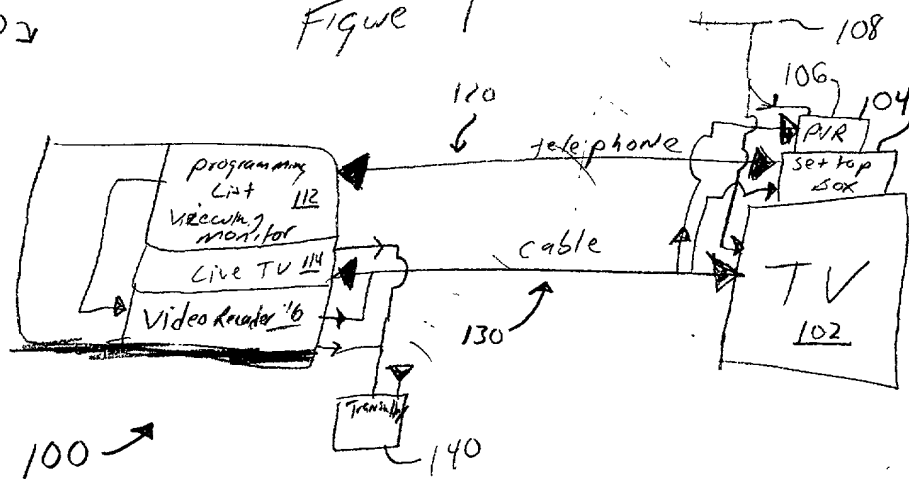 Figure 1
108
106
104
120
telephone
PVR
set top
Box
programming
List
112
Viewing
monitor
Live TV 114
Video Recorder 116
cable
130
TV
102
100
140